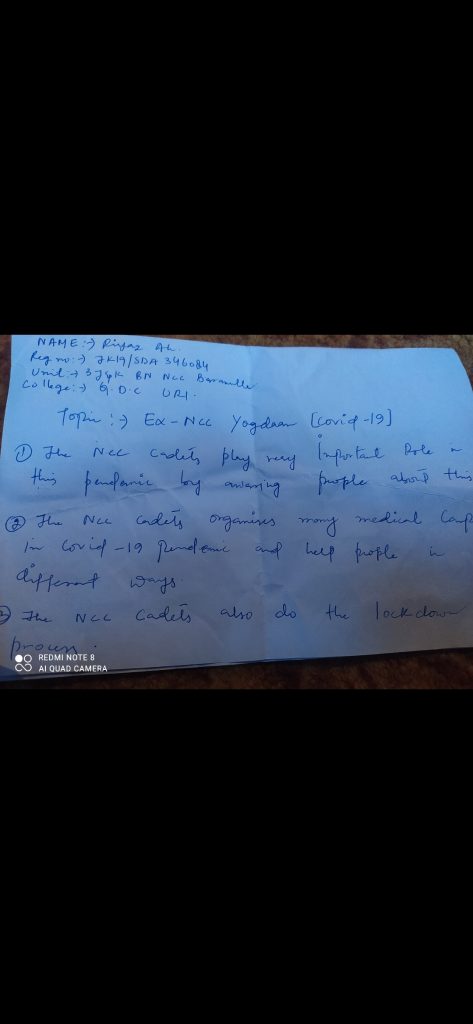 NAME :→ Riyaz Ah.
Reg no :→ JK19/SDA 346084
Unit → 3 J&K BN NCC Baramulla
College :→ G.D.C URI.
Topic :→ Ex-NCC Yogdaan [Covid-19]
① The NCC Cadets play very Important Role in
this pendemic by awaring people about this
② The NCC Cadets organises many medical Camp
in Covid-19 Pendemic and help people in
different ways.
The NCC Cadets also do the lockdown
process.
REDMI NOTE 8
AI QUAD CAMERA